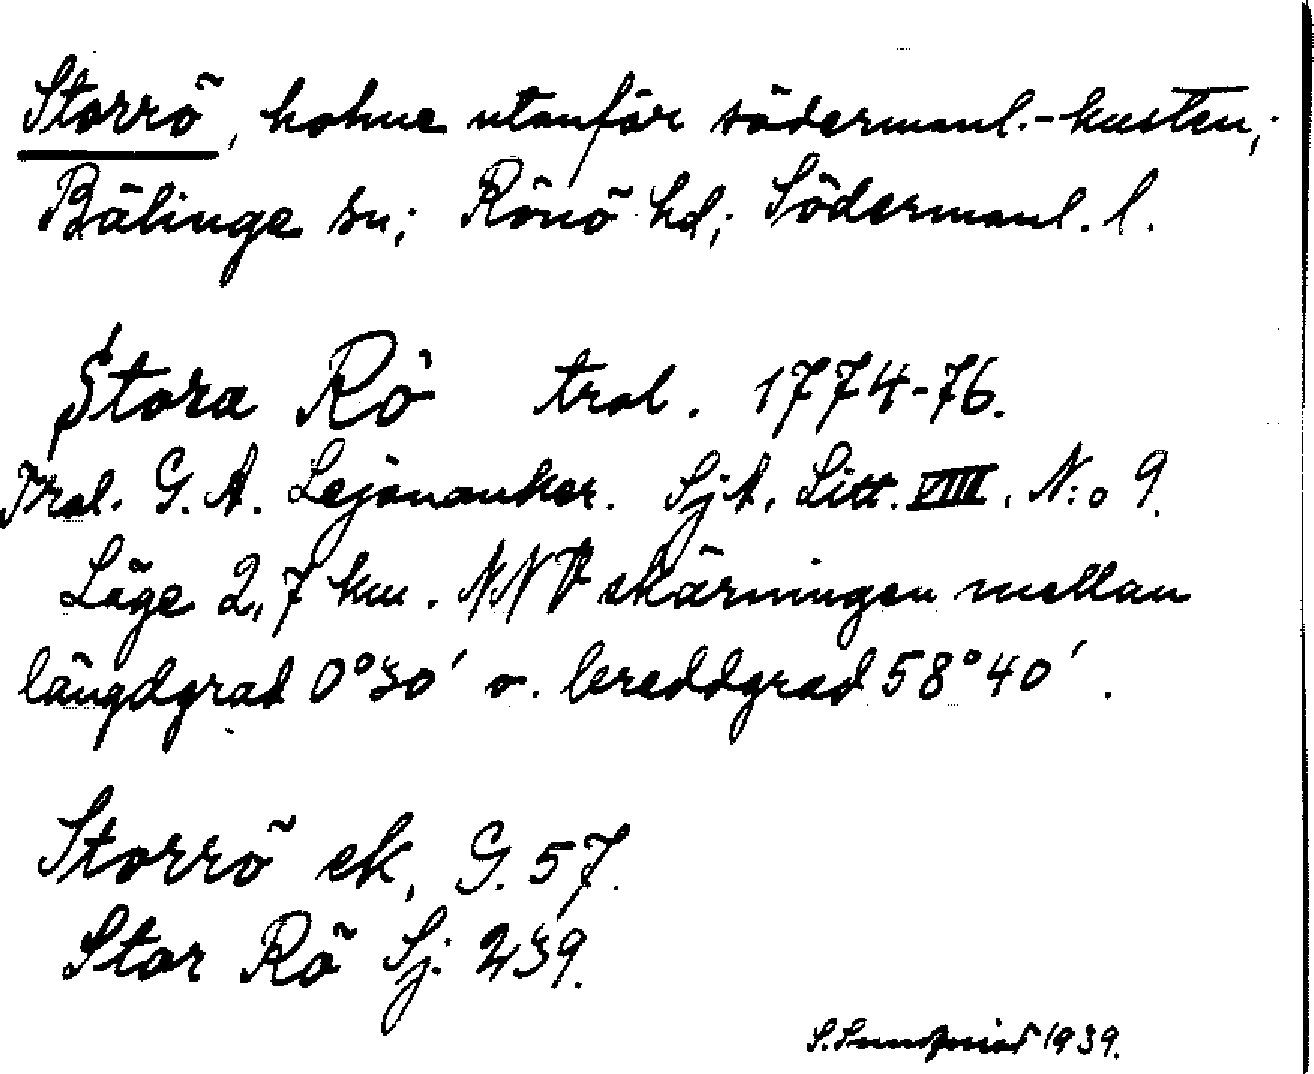 Storrö, holme utanför södermanl.-kusten,
Bälinge sn; Rönö hd; Södermanl. l.
Stora Rö tral. 1774-76.
Tral. G. A. Lejonanker. SjA. Litt. VIII. N:o 9.
Läge 2,7 km. NNV skärningen mellan
längdgrad 0°30' o. breddgrad 58°40'.
Storrö ek, G. 57.
Stor Rö Sj. 239.
S. Lundqvist 1939.